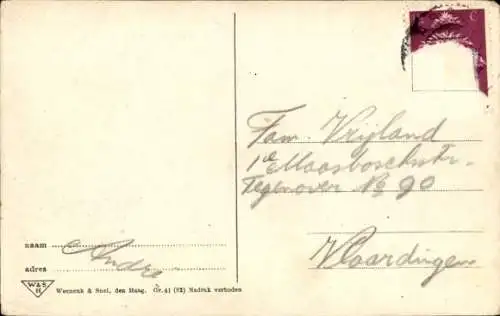 Fam. Vrijland
1e Maasboschstr.
Tegenover No 90
Vlaardingen
naam
Andre
adres
W&S
H
Weenenk & Snel, den Haag. Gr. 41 (62) Nadruk verboden